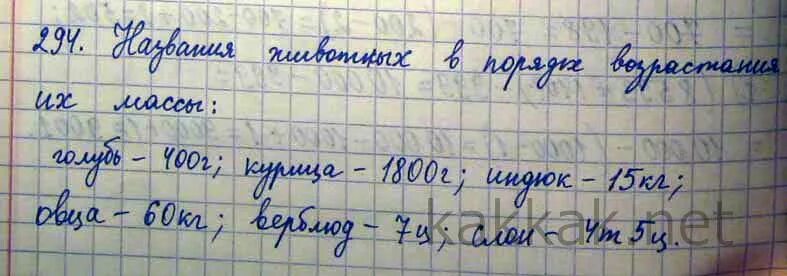 294. Названия животных в порядк возрастания
их массы:
голубь - 400г; курица - 1800г; индюк - 15кг;
овца - 60кг; верблюд - 7ц; слон - 4т 5ц.
kakkak.net